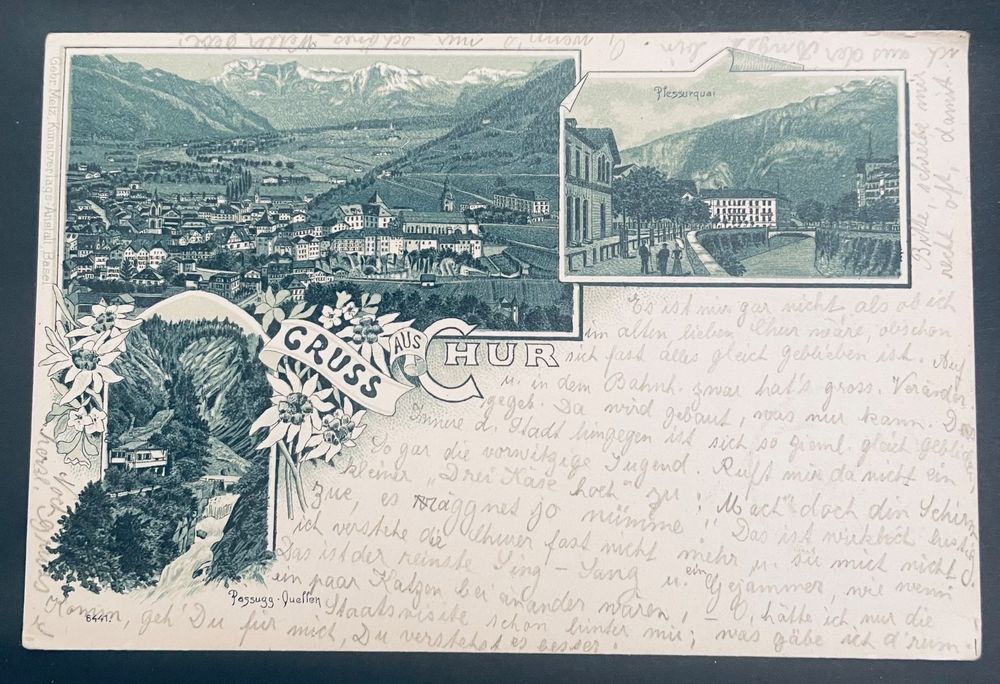 Plessurquai
GRUSS
AUS
CHUR
Passugg-Quellen
6441.
Gebr. Metz, Kunstverlags-Anstalt, Basel.
Es ist mir gar nicht, als ob ich
im alten lieben Chur wäre, obschon
sich fast alles gleich geblieben ist. Auf
u. in dem Bahnh. zwar hat's gross. Veränder.
gegeb. Da wird gebaut, was nur kann. D.
Innere d. Stadt hingegen ist sich so zieml. gleich geblieb.
Sogar die vorwitzige Jugend. Ruft mir da nicht ein
kleiner "Drei Käse hoch" zu: "Mach doch din Schirm
zue, es räggnet jo nümme". Das ist wirklich lustig
ich verstehe die Churer fast nicht mehr u. sie mich nicht
Das ist der reinste Sing-Sang u. ein Gejammer wie wenn
ein paar Katzen bei einander wären. - O, hätte ich nur die
Staatsvisite schon hinter mir; was gäbe ich d'rum.
Komm, geh' Du für mich, Du verstehst es besser.
Bitte, schreibe mir
recht oft, damit
ich aus der Angst bin
O, wenn's nur schönes Wetter